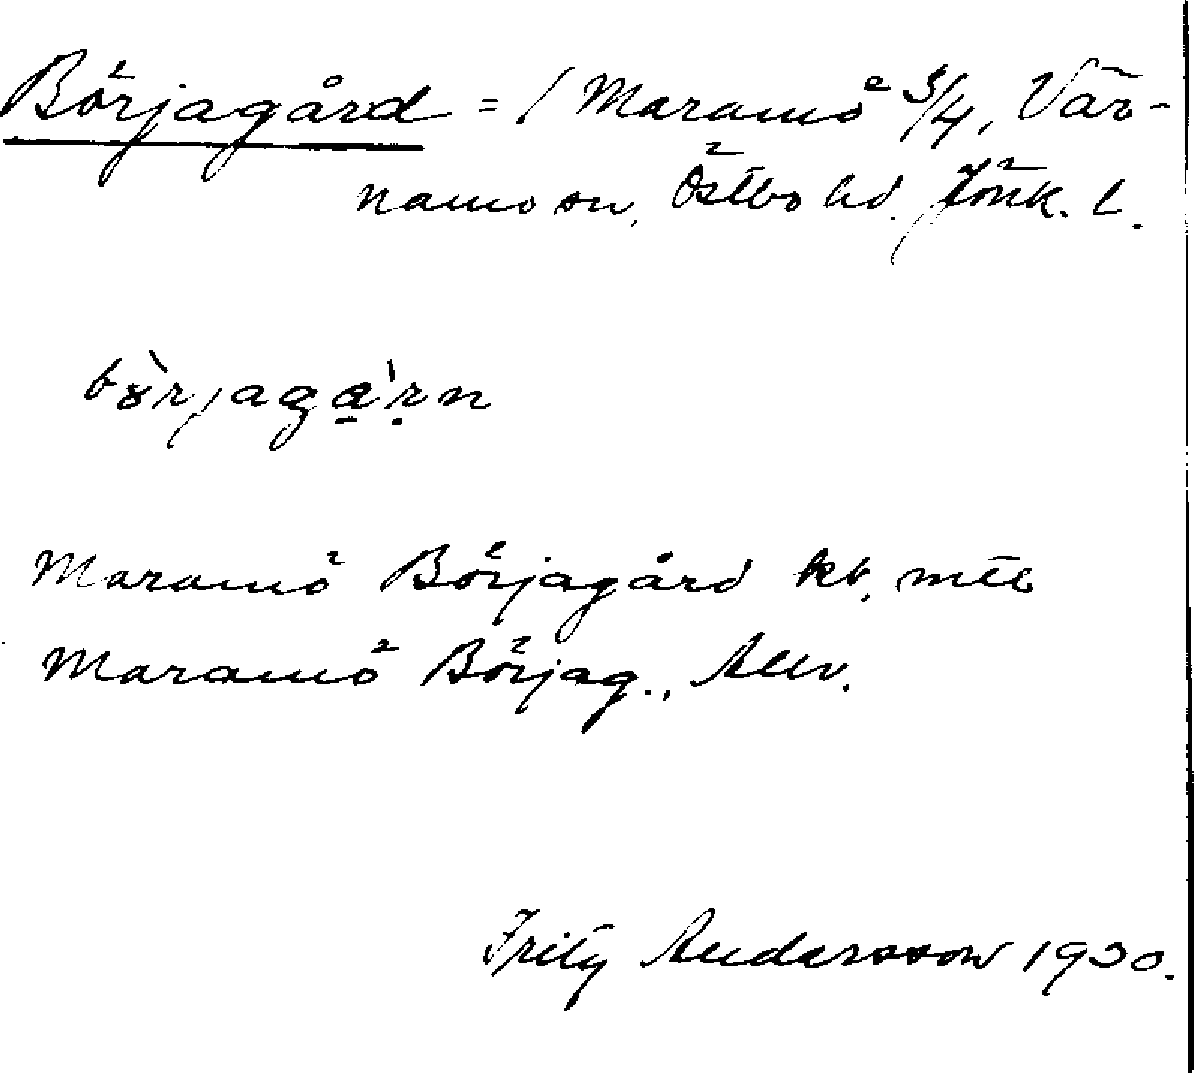 Börjagård = / Maramö 3/4, Vär-
namo sn, Östbo hd. Jönk. l.
bɤ̀rjaga̠̍ṛn
Maramö Börjagård kb, mtl
Maramö Börjag., Allv.
Fritz Andersson 1930.